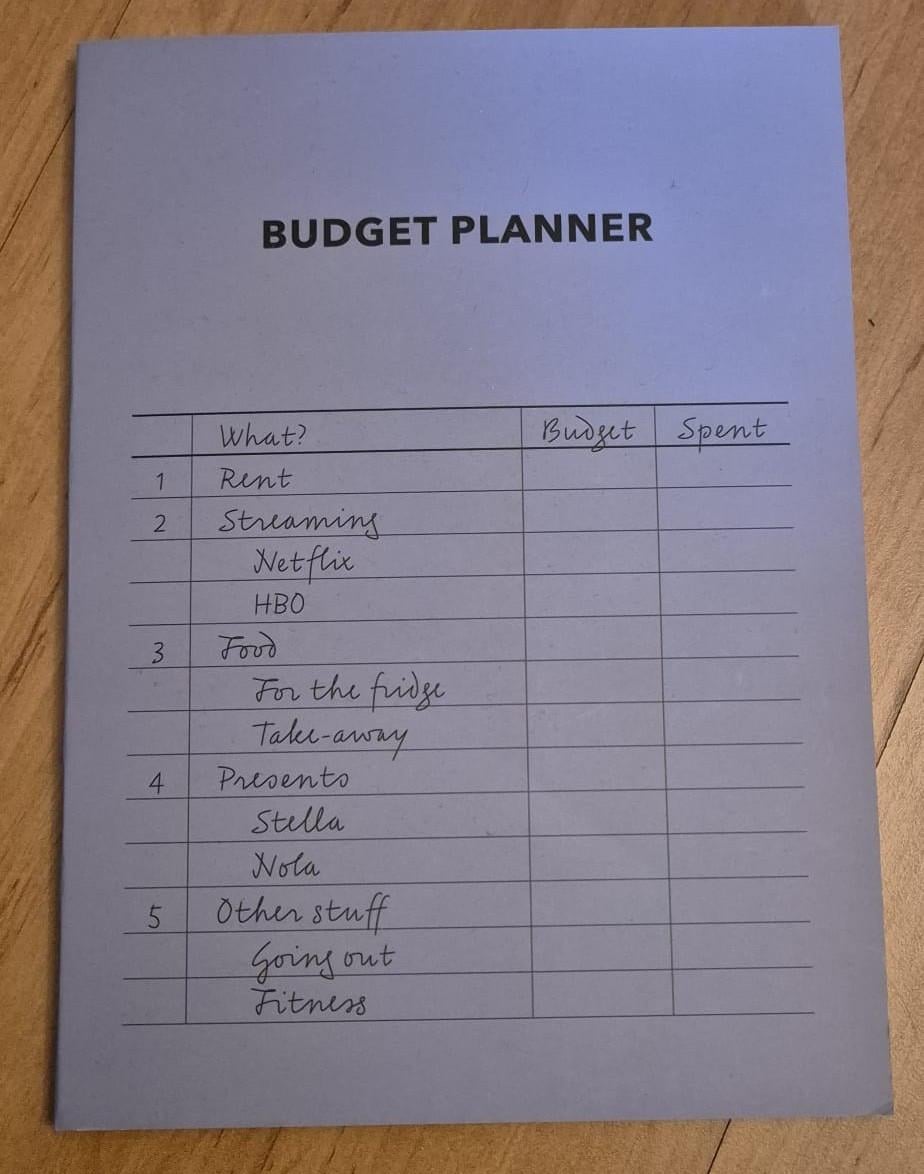 BUDGET PLANNER
What? Budget Spent
1 Rent
2 Streaming
Netflix
HBO
3 Food
For the fridge
Take-away
4 Presents
Stella
Nola
5 Other stuff
Going out
Fitness